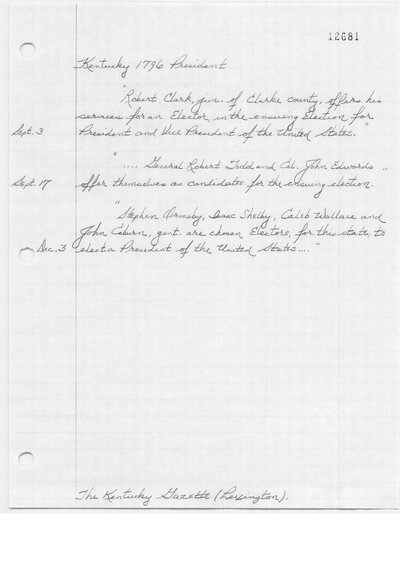 12681
Kentucky 1796 President
"Robert Clark, jun. of Clarke county, offers his
services for an Elector, in the ensuing Election for
Sept. 3 President and Vice President of the United States."
".... General Robert Todd and Col. John Edwards ..
Sept. 17 offer themselves as candidates for the ensuing election.
"Stephen Ormsby, Isaac Shelby, Caleb Wallace and
John Coburn, gent. are chosen Electors, for this state, to
Dec. 3 elect a President of the United States...."
The Kentucky Gazette (Lexington).